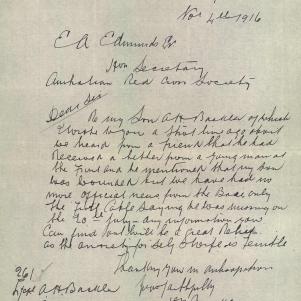 Nov 4th 1916
E A Edmunds Esq
Hon Secretary
Australian Red Cross Society
Dear Sir
Re my Son A H Barkler of which
I wrote to you a short time ago about
we heard from a friend that he had
Received a letter from a young man at
the Front and he mentioned that my son
was wounded but we have had no
more official news from the Base only
the first Cable saying he was missing on
the 20th July any information you
Can find out will be a great Relief
as the anxiety for Self & wife is terrible
Thanking you in anticipation
261
A H Barkler yours faithfully